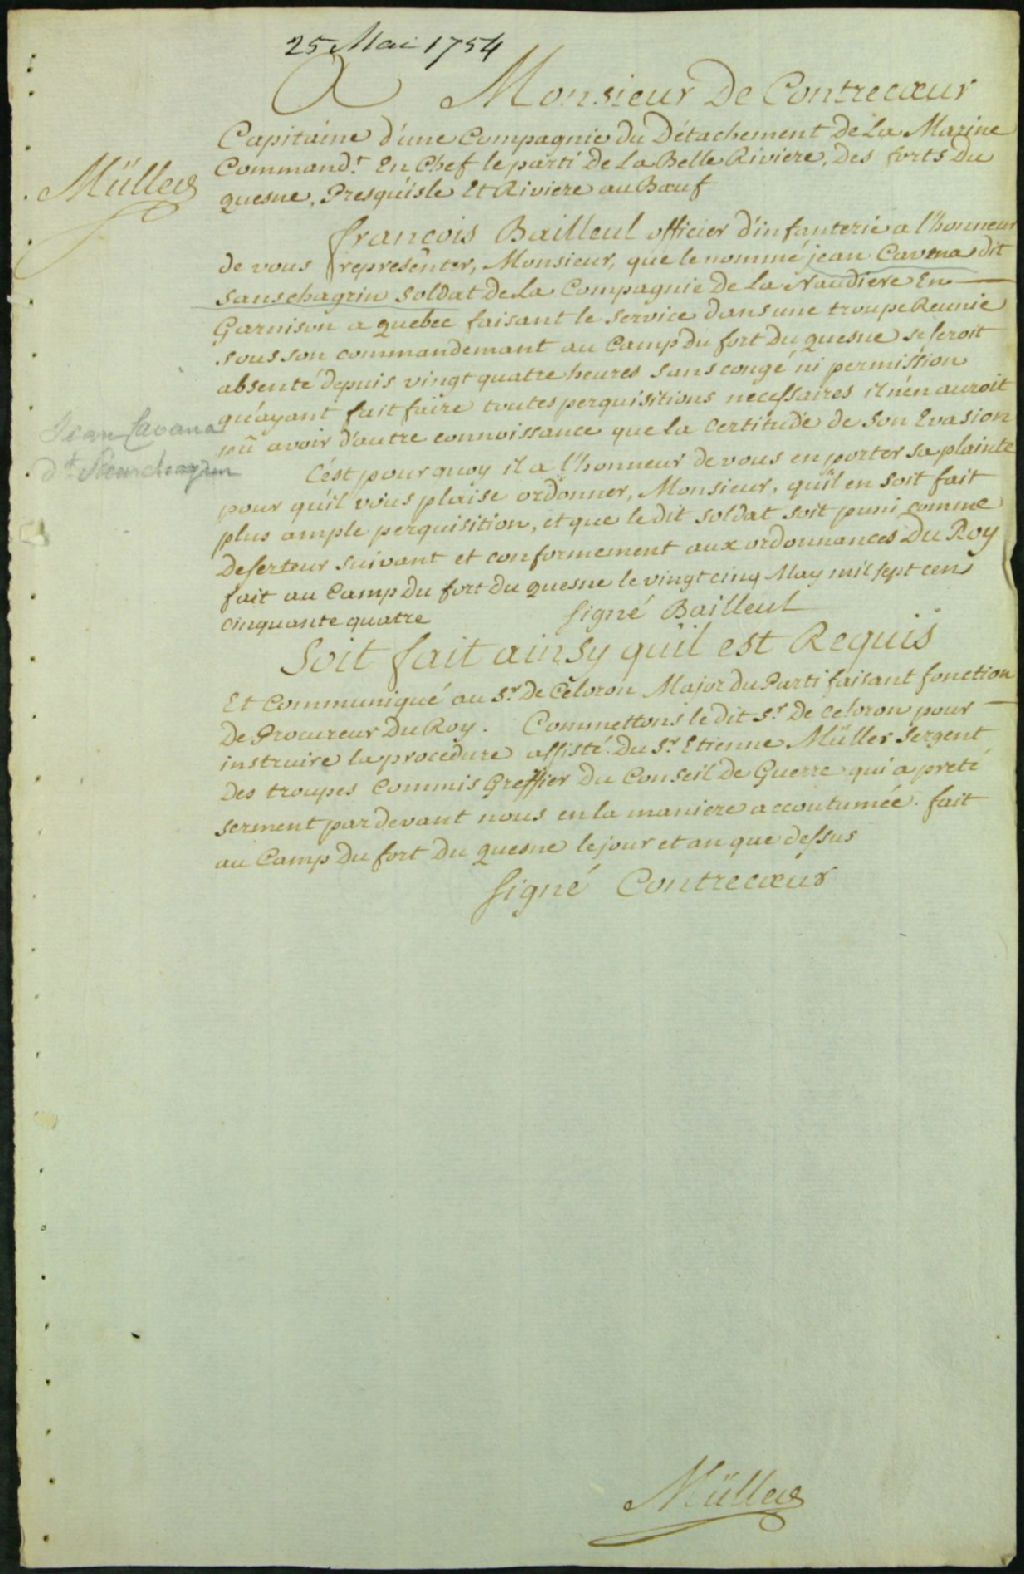 25 Mai 1754
A Monsieur De Contrecœur
Capitaine d'une Compagnie du Détachement de La Marine
Command.t En Chef le parti de La Belle Riviere, Des forts Du
quesne, Presqu'isle Et Riviere au Bœuf
Müller
françois Bailleul officier d'infanterie a l'honneur
de vous representer, Monsieur, que le nommé jean Cavana dit
Sanschagrin soldat de La Compagnie de La Naudiere En
Garnison a quebec faisant le service dans une troupe Reunie
sous son commandemant au Camp du fort du quesne se seroit
absenté depuis vingt quatre heures sans congé ni permission
qu'ayant fait faire toutes perquisitions necessaires il n'en auroit
pû avoir d'autre connoissance que la Certitude de Son Evasion
Jean Cavana
dt Sanschagrin
C'est pourquoy il a l'honneur de vous en porter sa plainte
pour qu'il vous plaise ordonner, Monsieur, qu'il en soit fait
plus ample perquisition, et que le dit soldat soit puni comme
Deserteur suivant et conformement aux ordonnances Du Roy
fait au Camp Du fort du quesne le vingt cinq May mil sept cens
cinquante quatre signé Bailleul
Soit fait ainsy qu'il est Requis
Et Communiqué au Sr. de Céloron Major du Parti faisant fonction
De Procureur Du Roy. Commettons le dit Sr. de Celoron pour
instruire la procedure assisté Du Sr. Etienne Müller Sergent
Des troupes Commis Greffier Du Conseil De Guerre qui a preté
serment par devant nous en la maniere accoutumée. fait
au Camp Du fort Du quesne le jour et an que dessus
signé Contrecœur
Müller